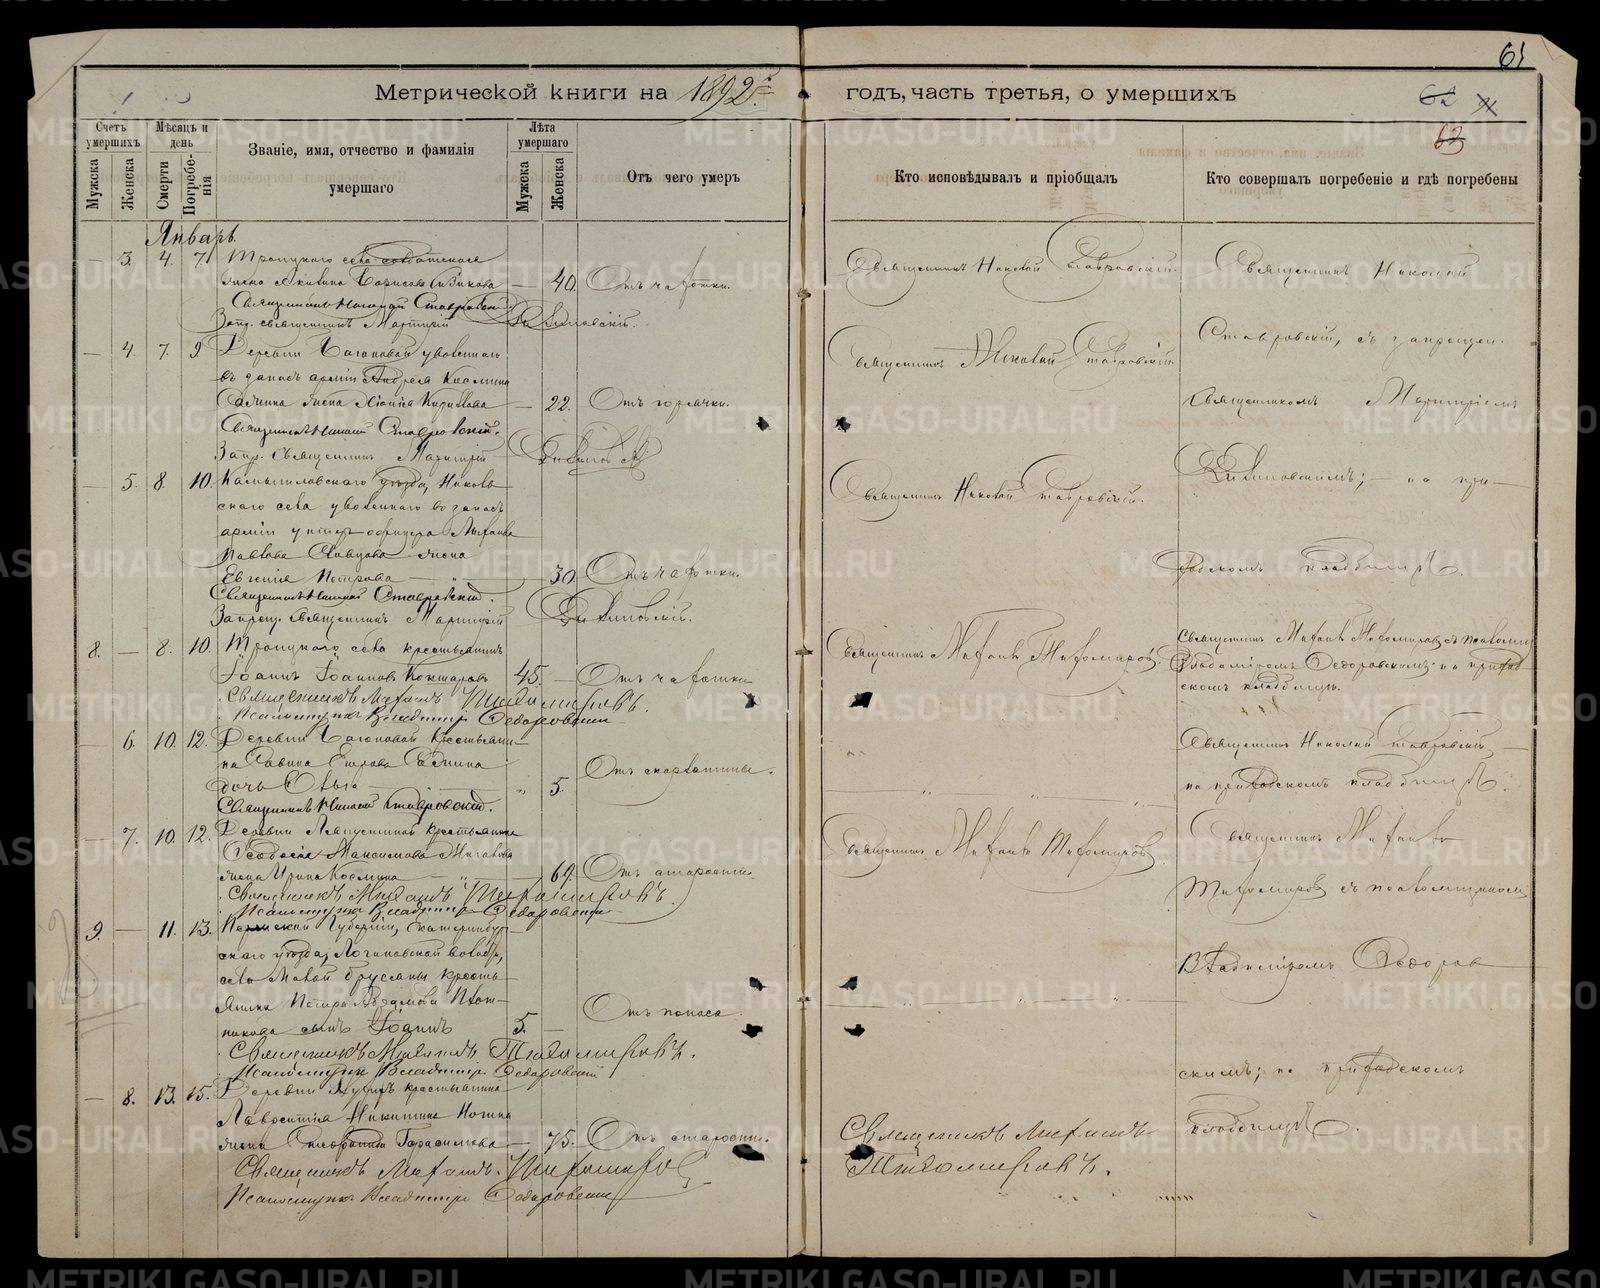 61
Метрической книги на 1892й
годъ, часть третья, о умершихъ
62
63
Счетъ умершихъ
Мужска
Женска
Мѣсяцъ и день
Смерти
Погребенія
Званіе, имя, отчество и фамилія
умершаго
Лѣта умершаго
Мужска
Женска
Отъ чего умеръ
Кто исповѣдывалъ и пріобщалъ
Кто совершалъ погребеніе и гдѣ погребены
Январь
— 3. 4. 7. Троицкаго села
жена Борисова — 40. Отъ чахотки.
Священникъ Николай Ставровскій
Священникъ Николай
Священникъ Николай Ставровскій.
Запр. священникъ Мартирій
— 4. 7. 9. Деревни уволеннаго
въ запасъ арміи Андрея Космина
жена Кирилова — 22. Отъ горячки.
Священникъ Николай Ставровскій
Ставровскій, съ запрещен.
священникомъ Мартиріемъ
Священникъ Николай Ставровскій.
Запр. Священникъ Мартирій
— 5. 8. 10. Камышловскаго уѣзда, Николь-
скаго села уволеннаго въ запасъ
арміи унтеръ офицера Михаила
Павлова жена
Евгенія Петрова — 30. Отъ чахотки.
Священникъ Николай Ставровскій.
на при-
ходскомъ кладбищѣ.
Священникъ Николай Ставровскій.
Запрещ. Священникъ Мартирій
8. — 8. 10. Троицкаго села крестьянинъ
Іоаннъ Іоанновъ 45. — Отъ чахотки
Священникъ Михаилъ Тихомировъ.
Священникъ Михаилъ Тихомировъ съ псаломщ.
Владиміромъ Ѳедоровскимъ на приход-
скомъ кладбищѣ.
Священникъ Михаилъ Тихомировъ.
Псаломщикъ Владиміръ Ѳедоровскій
— 6. 10. 12. Деревни крестьяни-
на Саввина Егорова
дочь Ольга „ 5. Отъ скарлатины.
Священникъ Николай Ставровскій
на приходскомъ кладбищѣ.
Священникъ Николай Ставровскій.
— 7. 10. 12. Деревни крестьянина
Ѳеодосія Максимова
жена Ирина Космина — 69. Отъ старости.
Священникъ Михаилъ Тихомировъ.
Священникъ Михаилъ
Тихомировъ съ псаломщикомъ
Священникъ Михаилъ Тихомировъ.
Псаломщикъ Владиміръ Ѳедоровскій
9. — 11. 13. Пермской Губерніи, Екатеринбург-
скаго уѣзда, Логиновской волости,
села Малой Брусяны кресть-
янина Петра Плот-
никова сынъ Іоаннъ 5. — Отъ поноса.
Владиміромъ Ѳедоров-
скимъ; на приходскомъ
кладбищѣ.
Священникъ Михаилъ Тихомировъ.
Псаломщикъ Владиміръ Ѳедоровскій
— 8. 13. 15. Деревни крестьянина
Лаврентія Никитина
жена Герасимова — 75. Отъ старости.
Священникъ Михаилъ
Тихомировъ.
Священникъ Михаилъ Тихомировъ
Псаломщикъ Владиміръ Ѳедоровскій
METRIKI.GASO-URAL.RU